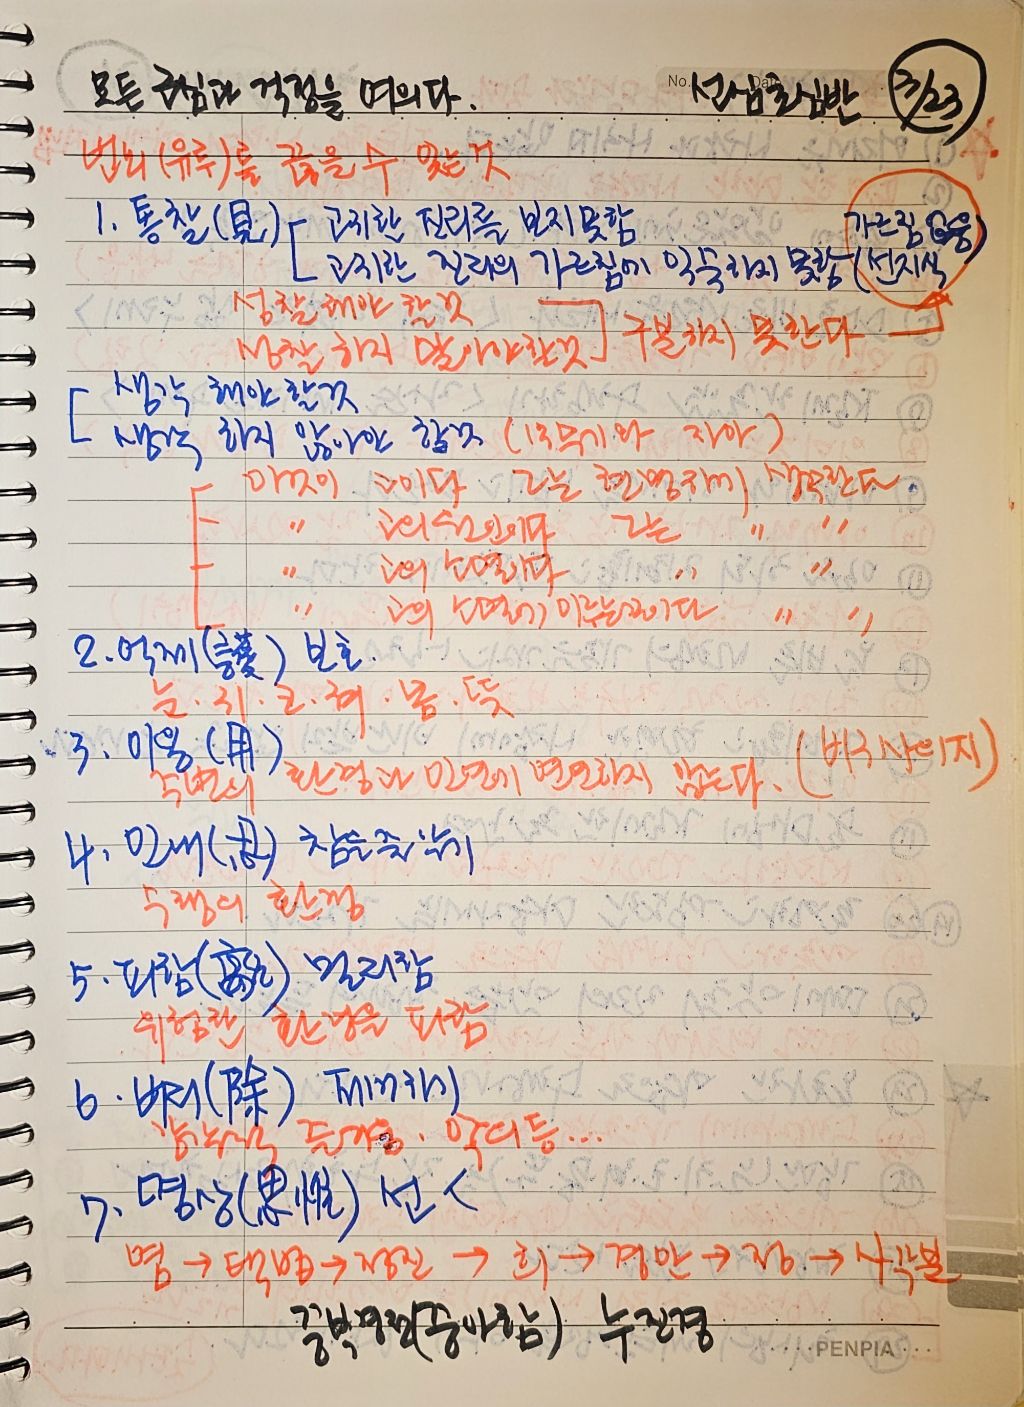 모든 근심과 걱정을 여의다.
No. Date
선심초심반 3/23
번뇌(유루)를 끊을 수 있는것
1. 통찰(見) 고귀한 진리를 보지못함 가르침 없음
고귀한 진리의 가르침에 익숙하지 못함 (선지식
성찰해야 할것
성찰 하지 말아야한것 구분하지 못한다
생각 해야할것
생각 하지 않아야 할것 (1무기와 자아)
이것이 고이다 그는 현명하게 생각한다
〃 고의 원인이다 그는 〃 〃
〃 고의 소멸이다 〃 〃
〃 고의 소멸에 이르는길이다 〃 〃
2. 억제(護) 보호.
눈. 귀. 코. 혀. 몸. 뜻
3. 이용(用)
주변의 환경과 인연에 연연하지 않는다. (비구사의지)
4. 인내(忍) 참을줄 알기
수행의 환경
5. 피함(離) 멀리함
위험한 환경을 피함
6. 버림(除) 제거하기
즐거움. 악의 등...
7. 명상(思惟) 선 <
염 → 택법 → 정진 → 희 → 경안 → 정 → 사각분
꽁박경전(중아함) 누진경
PENPIA